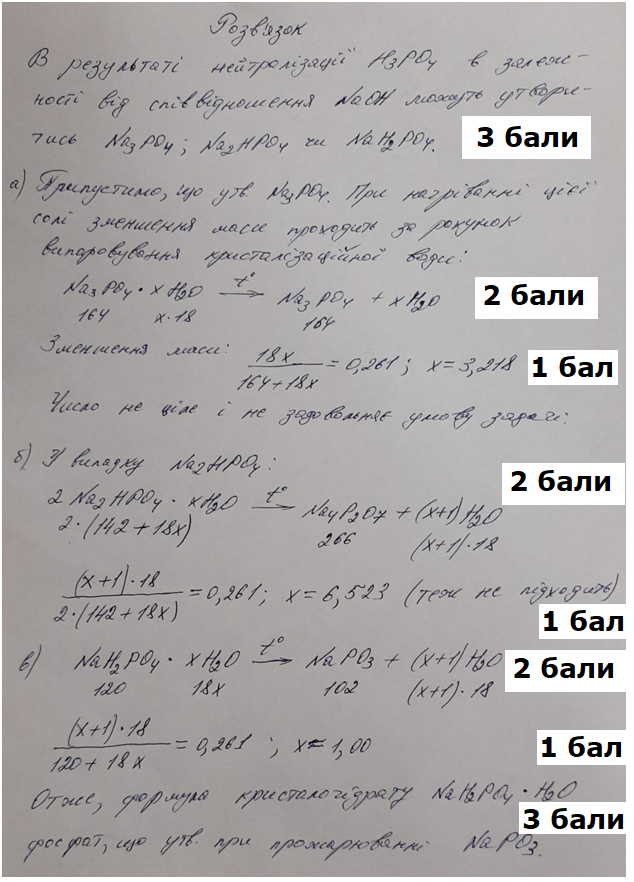 Розв'язок
В результаті нейтралізації H3PO4 в залеж-
ності від співвідношення NaOH можуть утвори-
тись Na3PO4; Na2HPO4 чи NaH2PO4. 3 бали
а) Припустимо, що утв. Na3PO4. При нагріванні цієї
солі зменшення маси проходить за рахунок
випаровування кристалізаційної води:
Na3PO4 · xH2O t° → Na3PO4 + xH2O 2 бали
164 x·18 164
Зменшення маси: 18x / 164+18x = 0,261; x = 3,218 1 бал
Число не ціле і не задовольняє умову задачі.
б) У випадку Na2HPO4:
2 Na2HPO4 · xH2O t° → Na4P2O7 + (x+1)H2O 2 бали
2·(142+18x) 266 (x+1)·18
(x+1)·18 / 2·(142+18x) = 0,261; x = 6,523 (теж не підходить)
1 бал
в) NaH2PO4 · xH2O t° → NaPO3 + (x+1)H2O 2 бали
120 18x 102 (x+1)·18
(x+1)·18 / 120+18x = 0,261; x = 1,00 1 бал
Отже, формула кристалогідрату NaH2PO4 · H2O
3 бали
фосфат, що утв. при прожарюванні NaPO3.